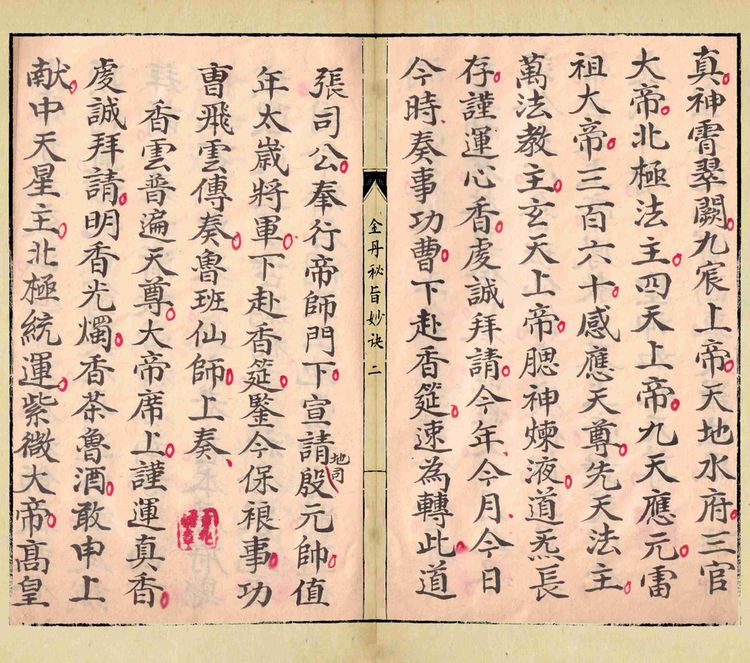 真神霄翠闕九宸上帝天地水府三官
大帝北極法主四天上帝九天應元雷
祖大帝三百六十感應天尊先天法主
萬法教主玄天上帝腮神煉液道炁長
存謹運心香虔誠拜請今年今月今日
今時奏事功曹下赴香筵速為轉此道
金丹秘旨妙诀 二
張司公奉行帝師門下宣請地司殷元帥值
年太歲將軍下赴香筵鑒今保禄事功
曹飛雲傳奏魯班仙師上奏
香雲普遍天尊大帝席上謹運真香
虔誠拜請明香光燭香茶魯酒敢申上
献中天星主北極統運紫微大帝高皇